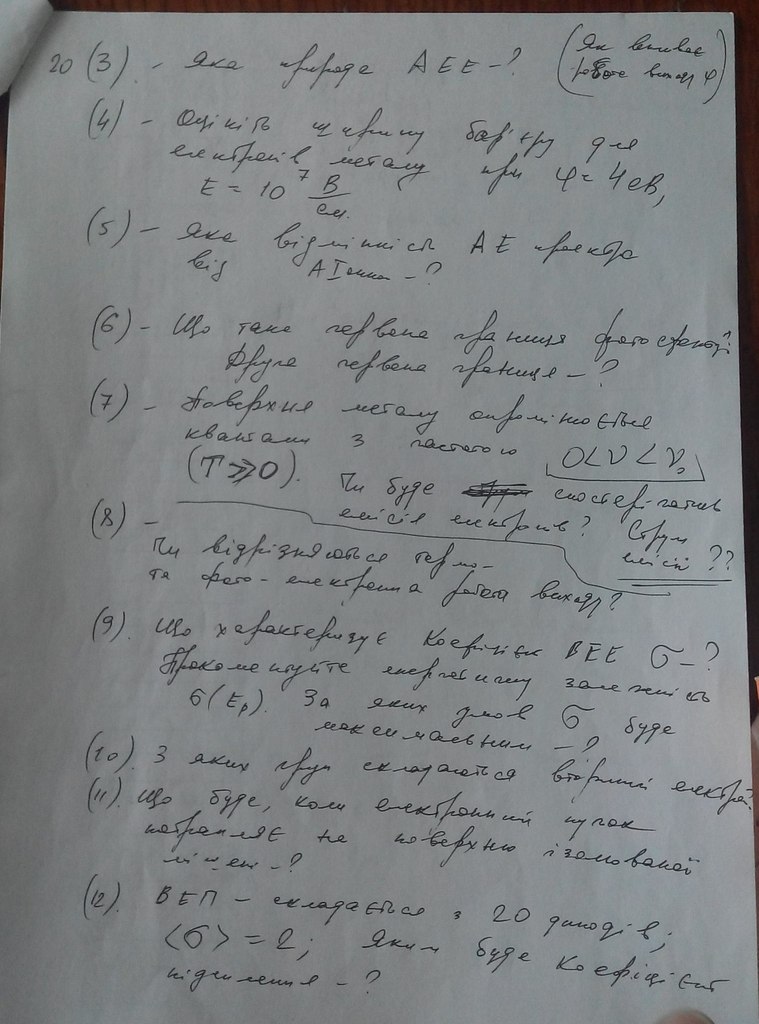 20 (3). - Яка природа АЕЕ - ? (Як впливає
робота виходу φ)
(4) - Оцініть ширину бар'єру для
електронів металу при φ = 4 еВ,
E = 10⁷ В/см.
(5) - Яка відмінність АЕ проектора
від АІонн - ?
(6) - Що таке червона границя фотоефекту?
Друга червона границя - ?
(7) - Поверхня металу опромінюється
квантами з частотою 0<ν<ν₀
(T≫0). Чи буде спостерігатись
емісія електронів? Струм
емісії ??
(8) -
Чи відрізняються термо-
та фото-електронна робота виходу?
(9) Що характеризує коефіцієнт ВЕЕ σ - ?
Прокоментуйте енергетичну залежність
σ(Eₚ). За яких умов σ буде
максимальним - ?
(10). З яких груп складаються вторинні електрони?
(11). Що буде, коли електронний пучок
потрапляє на поверхню ізольованої
мішені - ?
(12). ВЕП - складається з 20 динодів;
<σ> = 2; Яким буде коефіцієнт
підсилення - ?